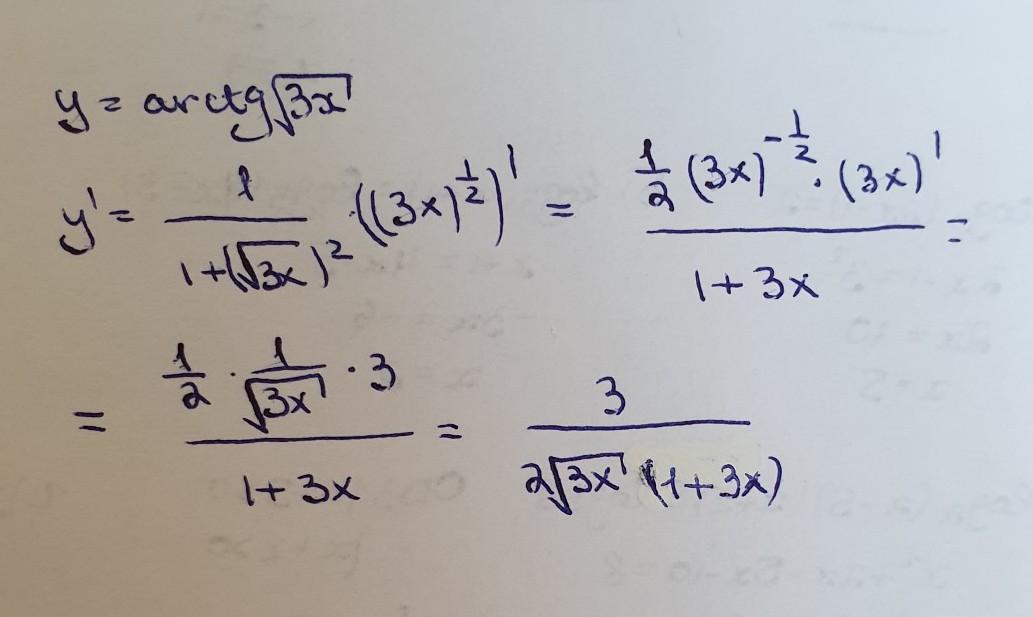 y = arctg√(3x)
y' = 1/(1+(√(3x))²) · ((3x)^(1/2))' = (1/2 (3x)^(-1/2) · (3x)')/(1+3x) =
= (1/2 · 1/√(3x) · 3)/(1+3x) = 3/(2√(3x) (1+3x))